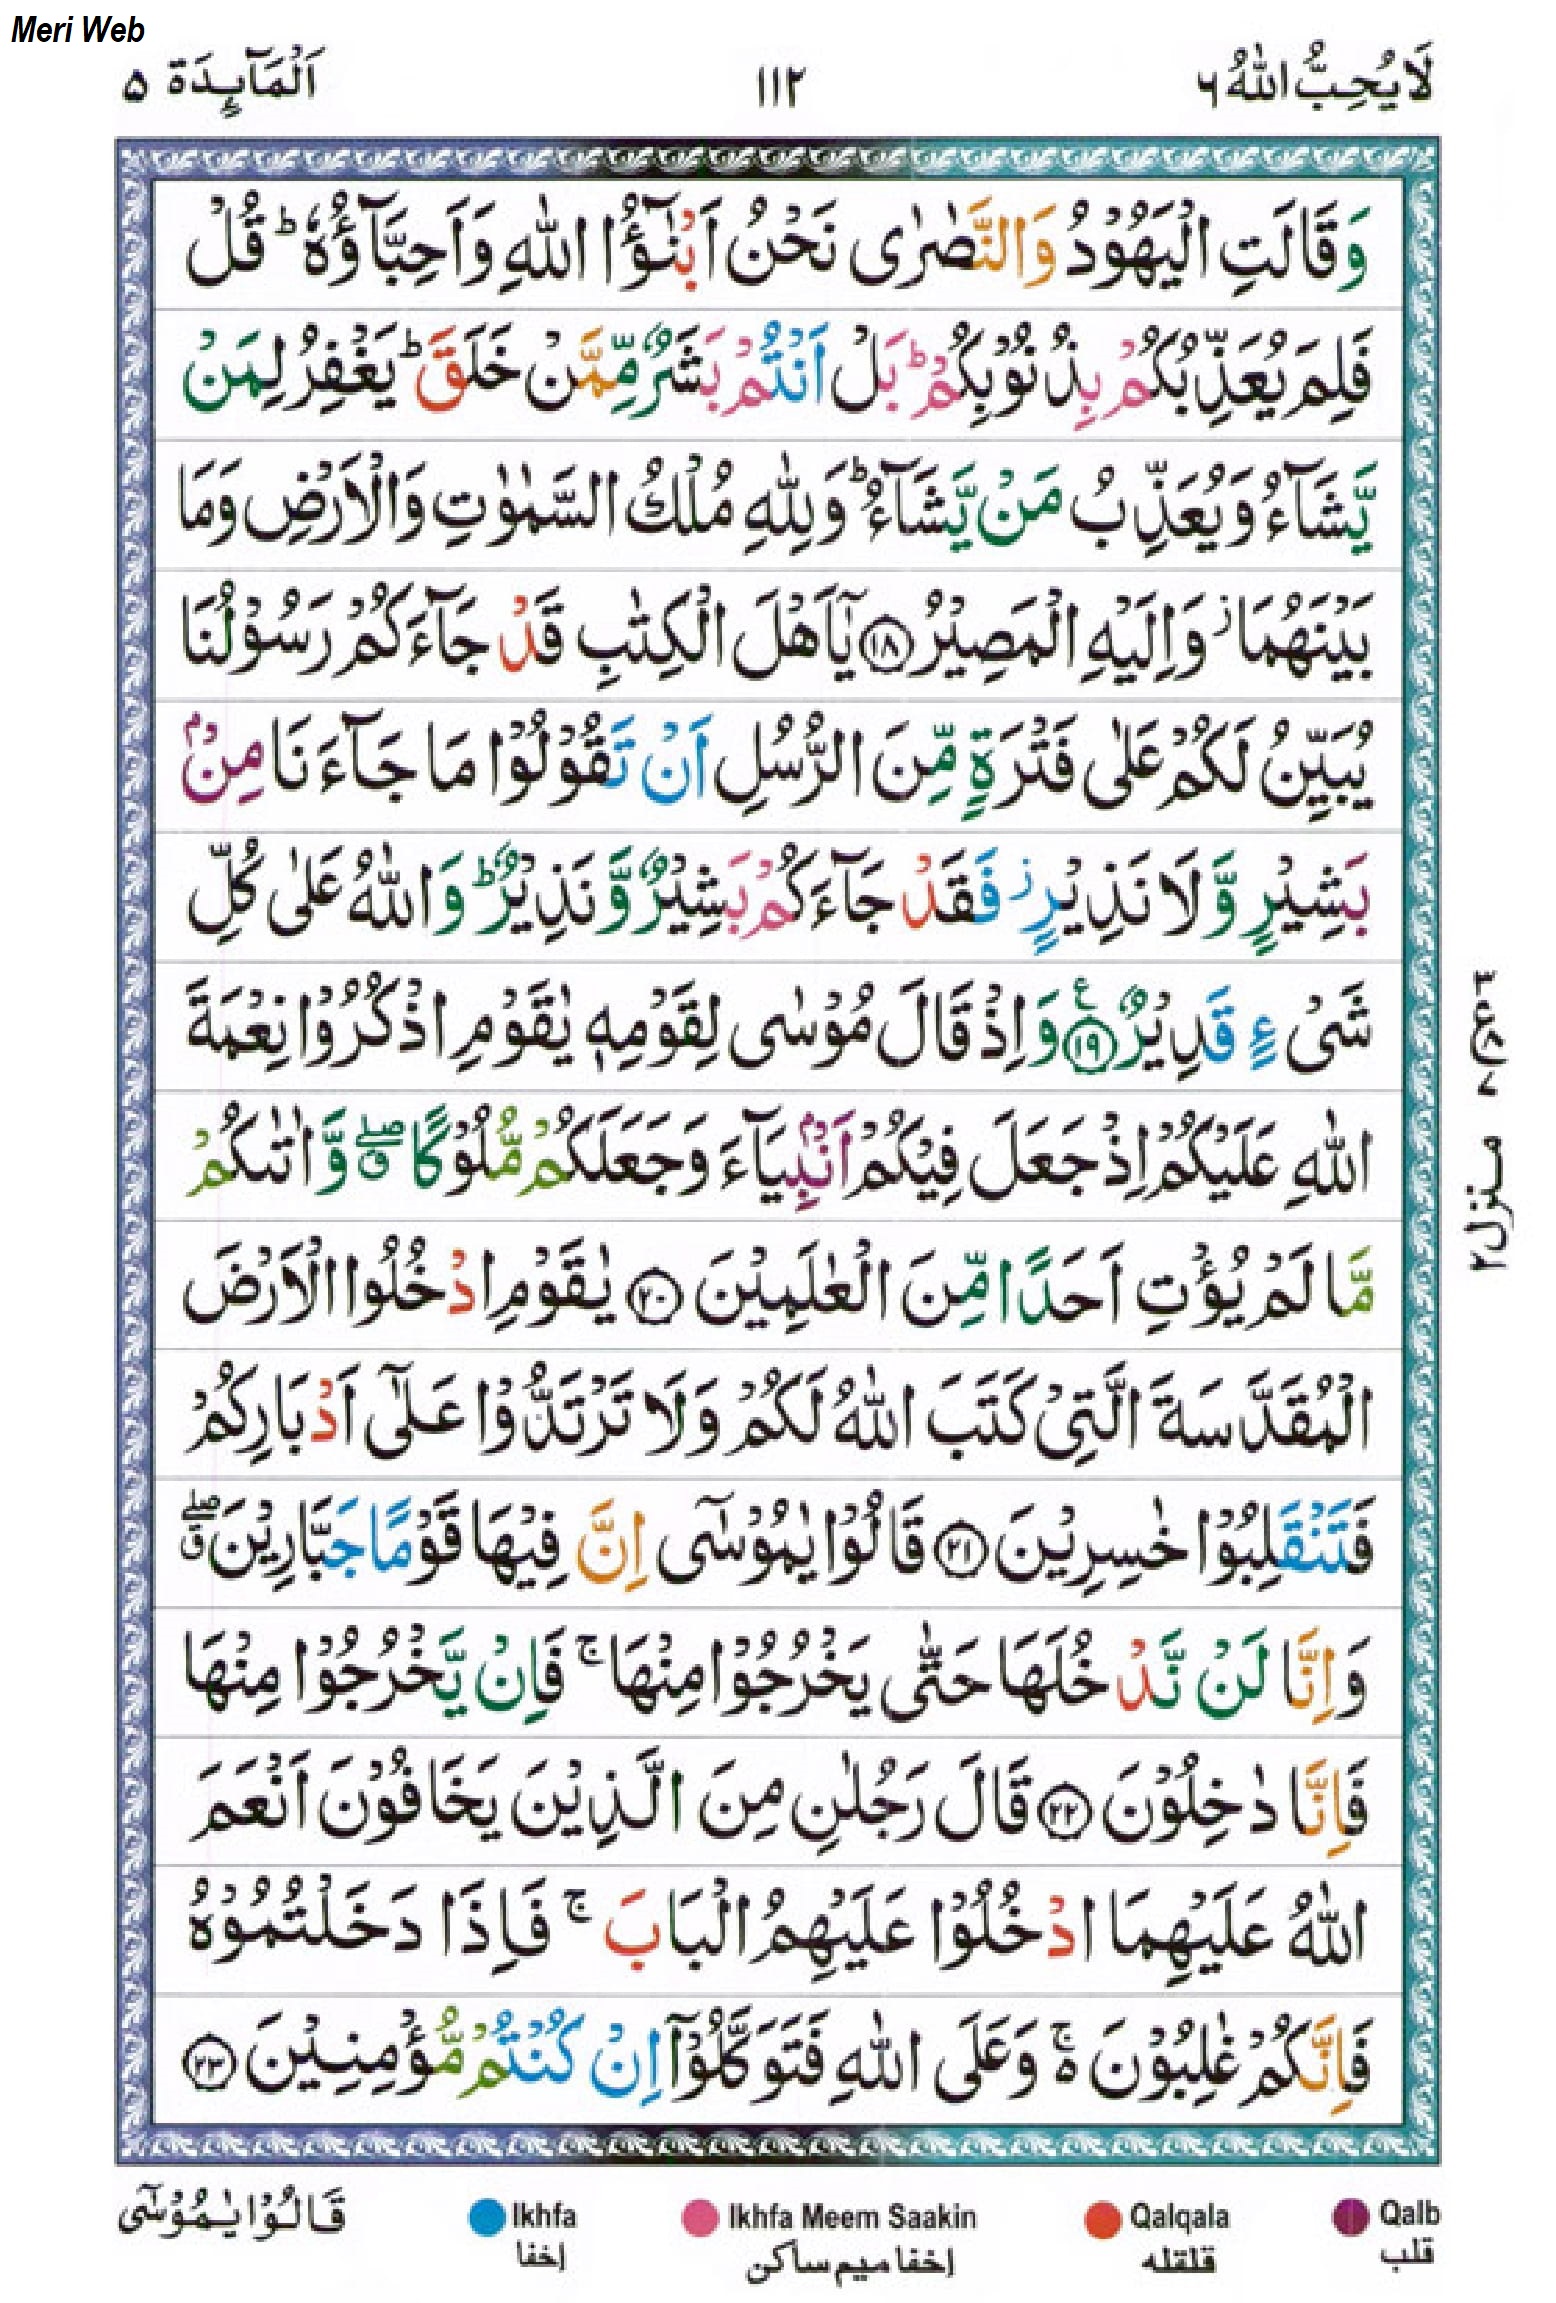 Meri Web
لَا يُحِبُّ اللّٰهُ ٦
١١٢
اَلْمَآئِدَة ٥
وَقَالَتِ الْيَهُوْدُ وَالنَّصٰرٰى نَحْنُ اَبْنٰٓؤُا اللّٰهِ وَاَحِبَّآؤُهٗ ؕ قُلْ
فَلِمَ يُعَذِّبُكُمْ بِذُنُوْبِكُمْ ؕ بَلْ اَنْتُمْ بَشَرٌ مِّمَّنْ خَلَقَ ؕ يَغْفِرُ لِمَنْ
يَّشَآءُ وَيُعَذِّبُ مَنْ يَّشَآءُ ؕ وَلِلّٰهِ مُلْكُ السَّمٰوٰتِ وَالْاَرْضِ وَمَا
بَيْنَهُمَا ز وَاِلَيْهِ الْمَصِيْرُ ١٨ يٰۤاَهْلَ الْكِتٰبِ قَدْ جَآءَكُمْ رَسُوْلُنَا
يُبَيِّنُ لَكُمْ عَلٰى فَتْرَةٍ مِّنَ الرُّسُلِ اَنْ تَقُوْلُوْا مَا جَآءَنَا مِنْۢ
بَشِيْرٍ وَّلَا نَذِيْرٍ ز فَقَدْ جَآءَكُمْ بَشِيْرٌ وَّنَذِيْرٌ ؕ وَاللّٰهُ عَلٰى كُلِّ
شَىْءٍ قَدِيْرٌ ١٩ ع وَاِذْ قَالَ مُوْسٰى لِقَوْمِهٖ يٰقَوْمِ اذْكُرُوْا نِعْمَةَ
اللّٰهِ عَلَيْكُمْ اِذْ جَعَلَ فِيْكُمْ اَنْۢبِيَآءَ وَجَعَلَكُمْ مُّلُوْكًا ۖق وَّاٰتٰىكُمْ
مَّا لَمْ يُؤْتِ اَحَدًا مِّنَ الْعٰلَمِيْنَ ٢٠ يٰقَوْمِ ادْخُلُوا الْاَرْضَ
الْمُقَدَّسَةَ الَّتِىْ كَتَبَ اللّٰهُ لَكُمْ وَلَا تَرْتَدُّوْا عَلٰٓى اَدْبَارِكُمْ
فَتَنْقَلِبُوْا خٰسِرِيْنَ ٢١ قَالُوْا يٰمُوْسٰٓى اِنَّ فِيْهَا قَوْمًا جَبَّارِيْنَ ۖق
وَاِنَّا لَنْ نَّدْخُلَهَا حَتّٰى يَخْرُجُوْا مِنْهَا ۚ فَاِنْ يَّخْرُجُوْا مِنْهَا
فَاِنَّا دٰخِلُوْنَ ٢٢ قَالَ رَجُلٰنِ مِنَ الَّذِيْنَ يَخَافُوْنَ اَنْعَمَ
اللّٰهُ عَلَيْهِمَا ادْخُلُوْا عَلَيْهِمُ الْبَابَ ۚ فَاِذَا دَخَلْتُمُوْهُ
فَاِنَّكُمْ غٰلِبُوْنَ ەۚ وَعَلَى اللّٰهِ فَتَوَكَّلُوْٓا اِنْ كُنْتُمْ مُّؤْمِنِيْنَ ٢٣
منزل ٢
قَالُوْا يٰمُوْسٰٓى
Ikhfa
إخفا
Ikhfa Meem Saakin
إخفا ميم ساكن
Qalqala
قلقله
Qalb
قلب